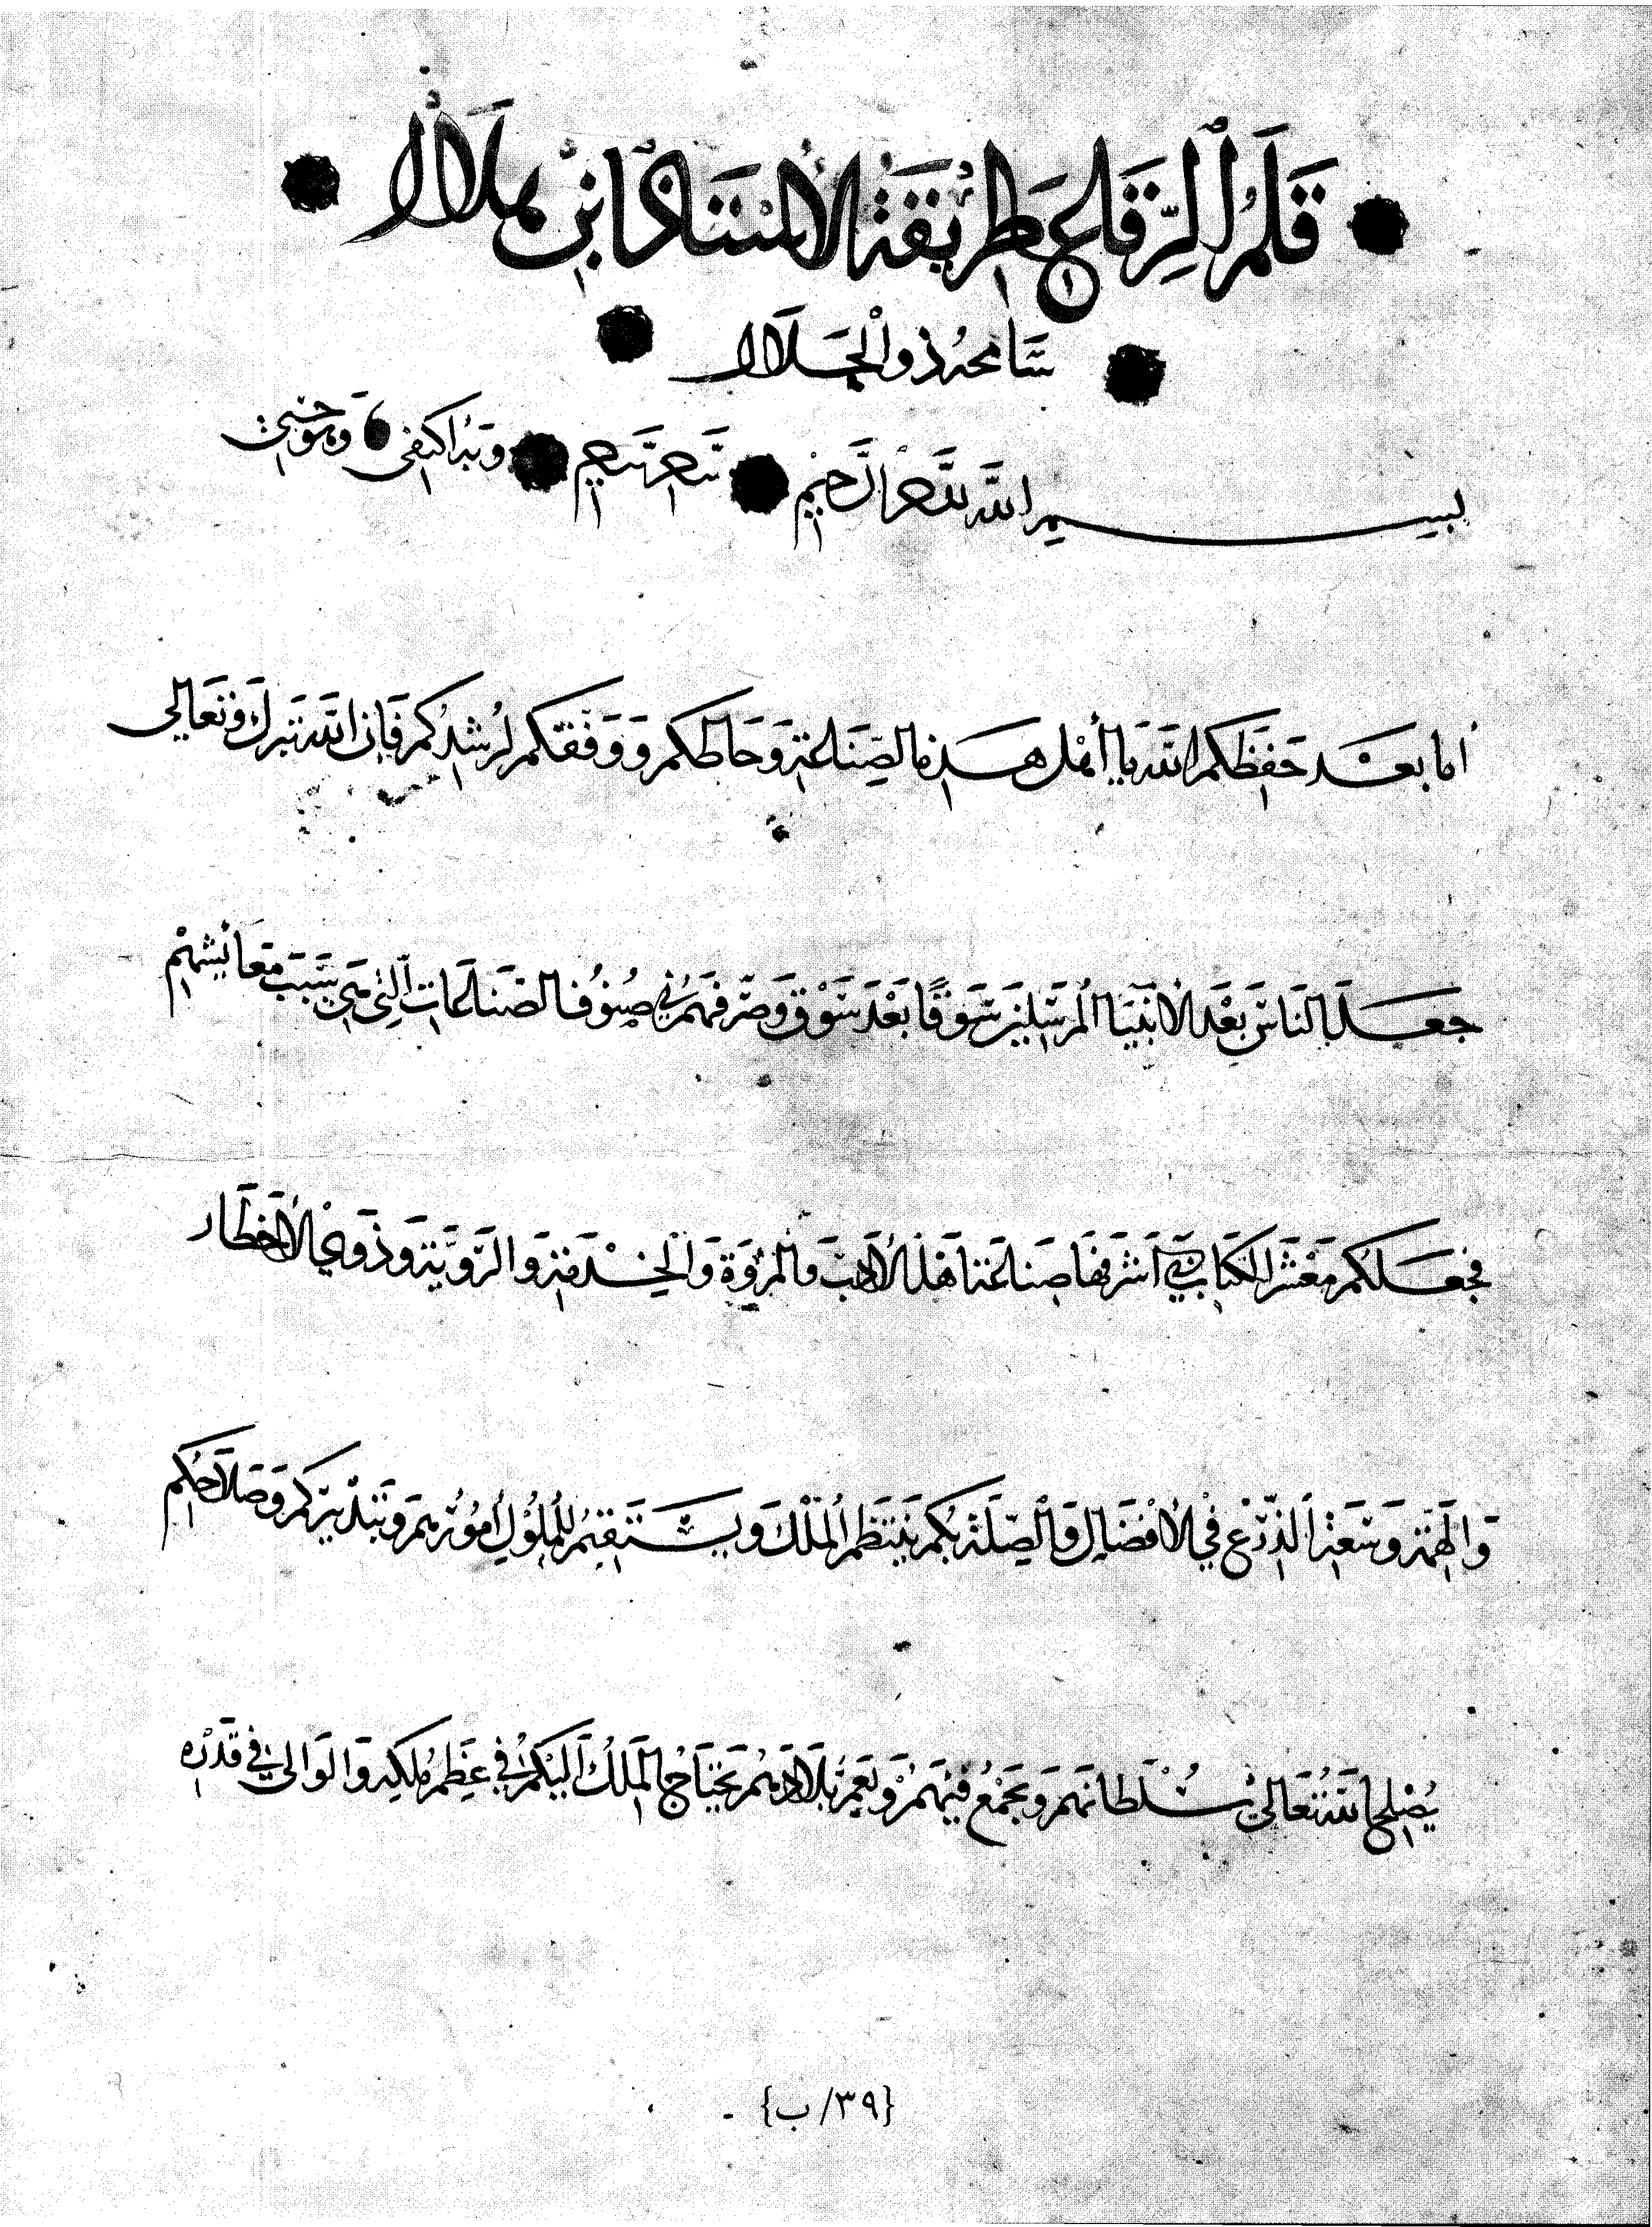 قَلَمُ الرِّقَاعِ طَرِيقَةُ الأُسْتَاذِ ابْنِ هِلَالٍ
سَامَحَهُ ذُو الْجَلَالِ
بسم الله الرَّحْمَنِ الرَّحِيمِ وَبِهِ اكْتَفِى وَهُوَ حَسْبِى
اما بَعْد حَفِظَكُم اللَّهُ يا أَهْلَ هَذِهِ الصِّنَاعَةِ وَحَاطَكُم وَوَفَّقَكُم لِرُشْدِكُم فَإِنَّ اللَّهَ تَبَرَكَ وَتَعَالى
جَعَلَ النَاسَ بَعْدَ الأَنْبِيَا المُرْسَلِينَ سُوَقًا بَعْدَ سُوَقٍ وَصَرَّفَهُمْ فِي صُنُوفِ الصَنَاعَاتِ الَّتِي هِيَ سَبَبَ مَعَائِشِهِمْ
فَجَعَلَكُم مَعْشَرَ الكُتَّابِ فِي أَشْرَفِهَا صِنَاعَةً أَهْلَ الأَدَبِ وَالمُرُوَّةِ وَالْخِدْمَةِ وَالرَّوِيَّةِ وَذَوِي الأَخْطَار
وَالهِمَّةِ وَسَعَةِ الذَّرْعِ فِي الأَفْضَالِ وَالصِّلَةِ بِكُم يَنْتَظِمُ المُلْكُ وَيَسْتَقِيمُ لِلْمُلُوكِ أُمُورُهُمْ وَبِتَدْبِيرِكُم وَصَلَاحِكُم
يُصْلِحُ اللَّهُ تَعَالَى سُلْطَانَهُمْ وَيَجْمَعُ فَيْئَهُمْ وَيَعْمُرُ بِلَادَهُمْ يَحْتَاجُ المَلِكُ الَيْكُمْ فِي عَظِيمِ مُلْكِهِ وَالوَالِي فِي قَدْرِه
{٣٩/ب}